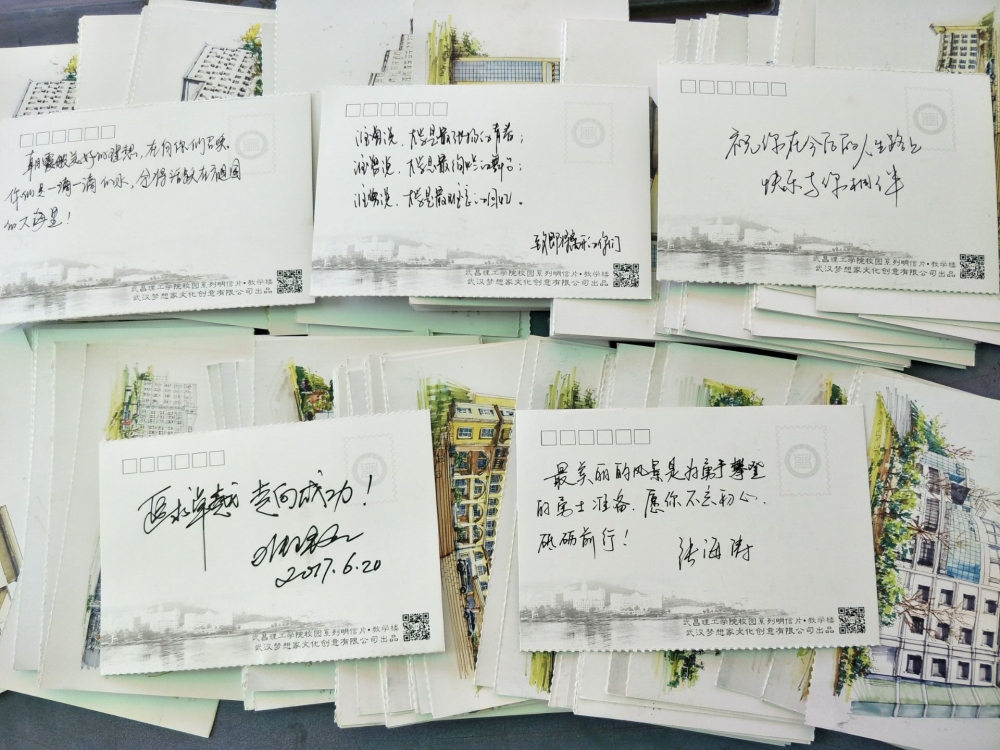 朝霞般美好的理想，在向你们召唤。
你们是一滴一滴的水，全将活跃在祖国
的大海里！
武昌理工学院校园系列明信片·教学楼
武汉梦想家文化创意有限公司出品
谁曾说，大学是最张扬的青春；
谁曾说，大学是最绚烂的舞台；
谁曾说，大学是最难忘的回忆。
致即将离开的你们
武昌理工学院校园系列明信片·教学楼
武汉梦想家文化创意有限公司出品
祝你在今后的人生路上
快乐与你相伴
武昌理工学院校园系列明信片·教学楼
武汉梦想家文化创意有限公司出品
追求卓越 走向成功！
2017.6.20
武昌理工学院校园系列明信片·教学楼
武汉梦想家文化创意有限公司出品
最美丽的风景是为勇于攀登
的勇士准备，愿你不忘初心，
砥砺前行！
张海涛
武昌理工学院校园系列明信片·教学楼
武汉梦想家文化创意有限公司出品